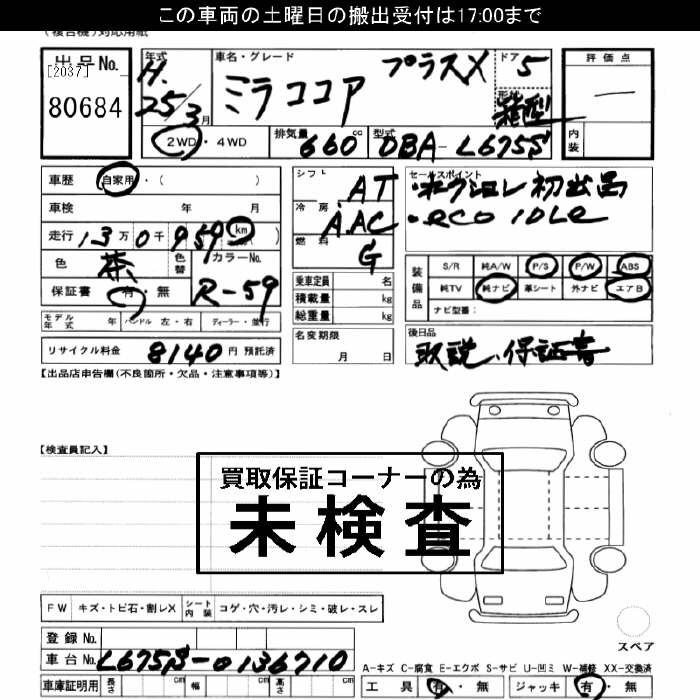 この車両の土曜日の搬出受付は17:00まで
出品No.
[2037]
80684
年式 H. 25/3月
車名・グレード
ミラココア プラスX
ドア 5
形状 箱型
評価点
内装
2WD・4WD
排気量 660 cc
型式 DBA-L675S
車歴 自家用・( )
車検 年 月
走行 13万0千959 km
色 茶
色替
カラーNo. R-59
保証書 有・無
モデル年式 年
ハンドル 左・右
ディーラー・並行
リサイクル料金 8140 円 預託済
シフト AT
冷房 AAC
燃料 G
乗車定員 名
積載量 kg
総重量 kg
名変期限
月 日
セールスポイント
・ eco IDLE
装備品
S/R 純A/W P/S P/W ABS
純TV 純ナビ 革シート 外ナビ エアB
ナビ型番:
後日品
取説、保証書
【出品店申告欄(不良箇所・欠品・注意事項等)】
【検査員記入】
買取保証コーナーの為
未検査
FW キズ・トビ石・割レX
シート内装 コゲ・穴・汚レ・シミ・破レ・スレ
スペア
登録No.
車台No. L675S-0136710
車庫証明用 長さ cm 幅 cm 高さ cm
A-キズ C-腐食 E-エクボ S-サビ U-凹ミ W-補修 XX-交換済
工具 有・無 ジャッキ 有・無